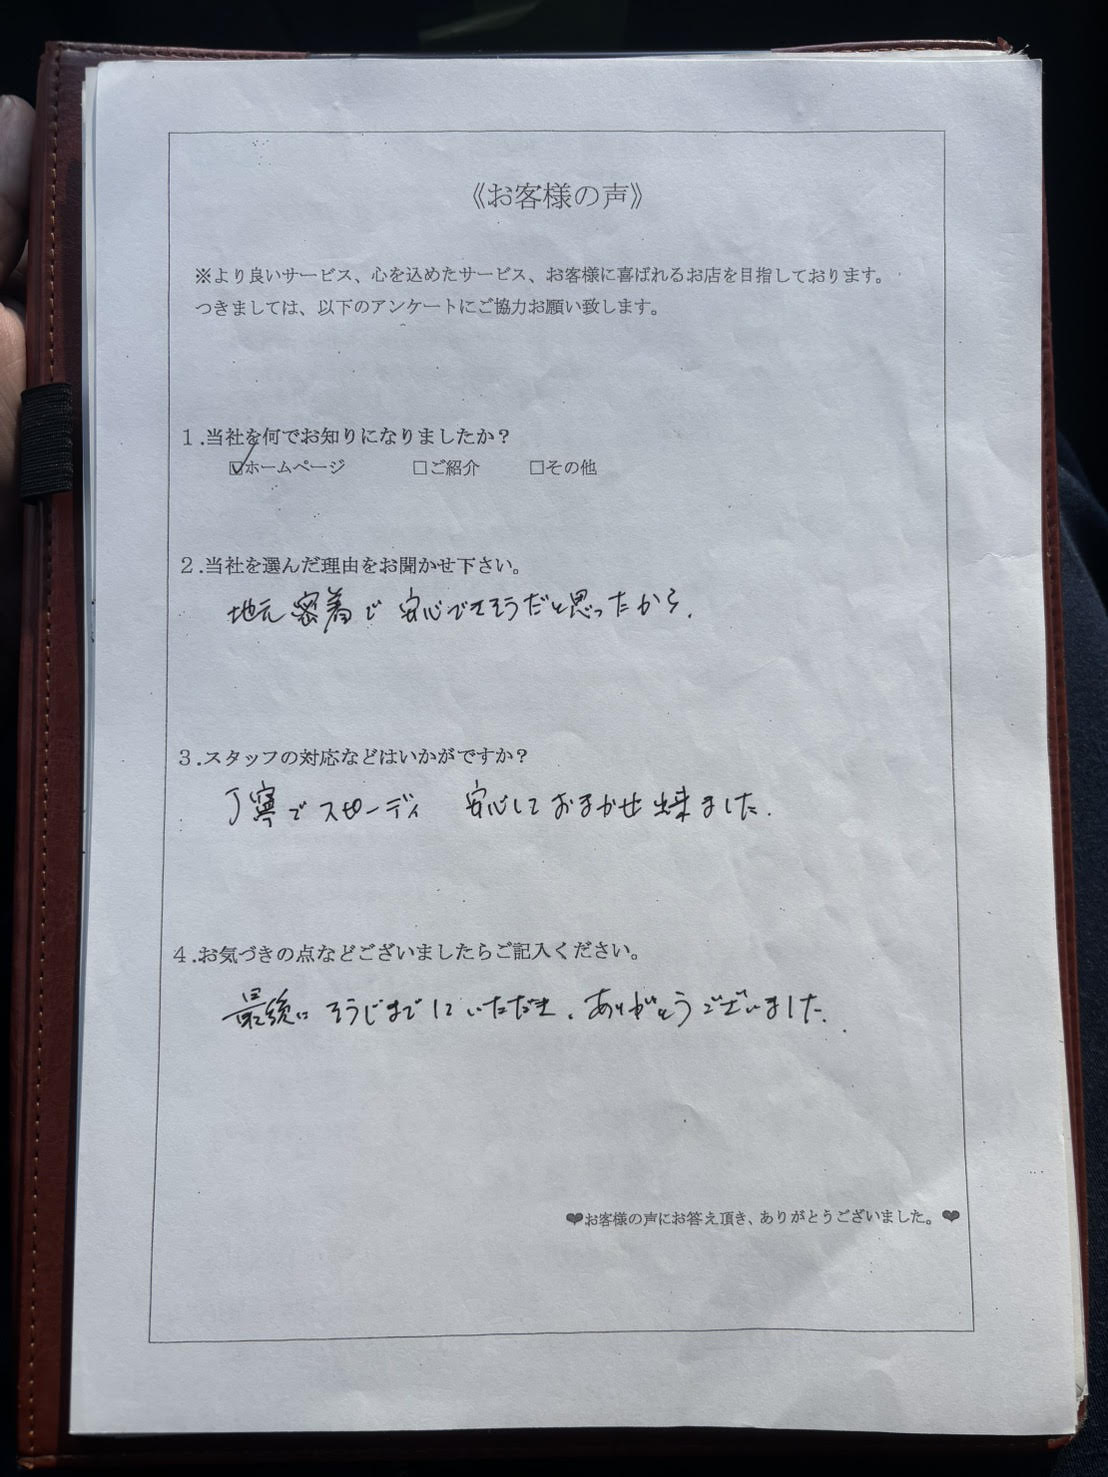 《お客様の声》
※より良いサービス、心を込めたサービス、お客様に喜ばれるお店を目指しております。
つきましては、以下のアンケートにご協力お願い致します。
1.当社を何でお知りになりましたか？
☑ホームページ □ご紹介 □その他
2.当社を選んだ理由をお聞かせ下さい。
地元密着で安心できそうだと思ったから。
3.スタッフの対応などはいかがですか？
丁寧でスピーディ 安心しておまかせ出来ました。
4.お気づきの点などございましたらご記入ください。
最後にそうじまでしていただき、ありがとうございました。
❤お客様の声にお答え頂き、ありがとうございました。❤